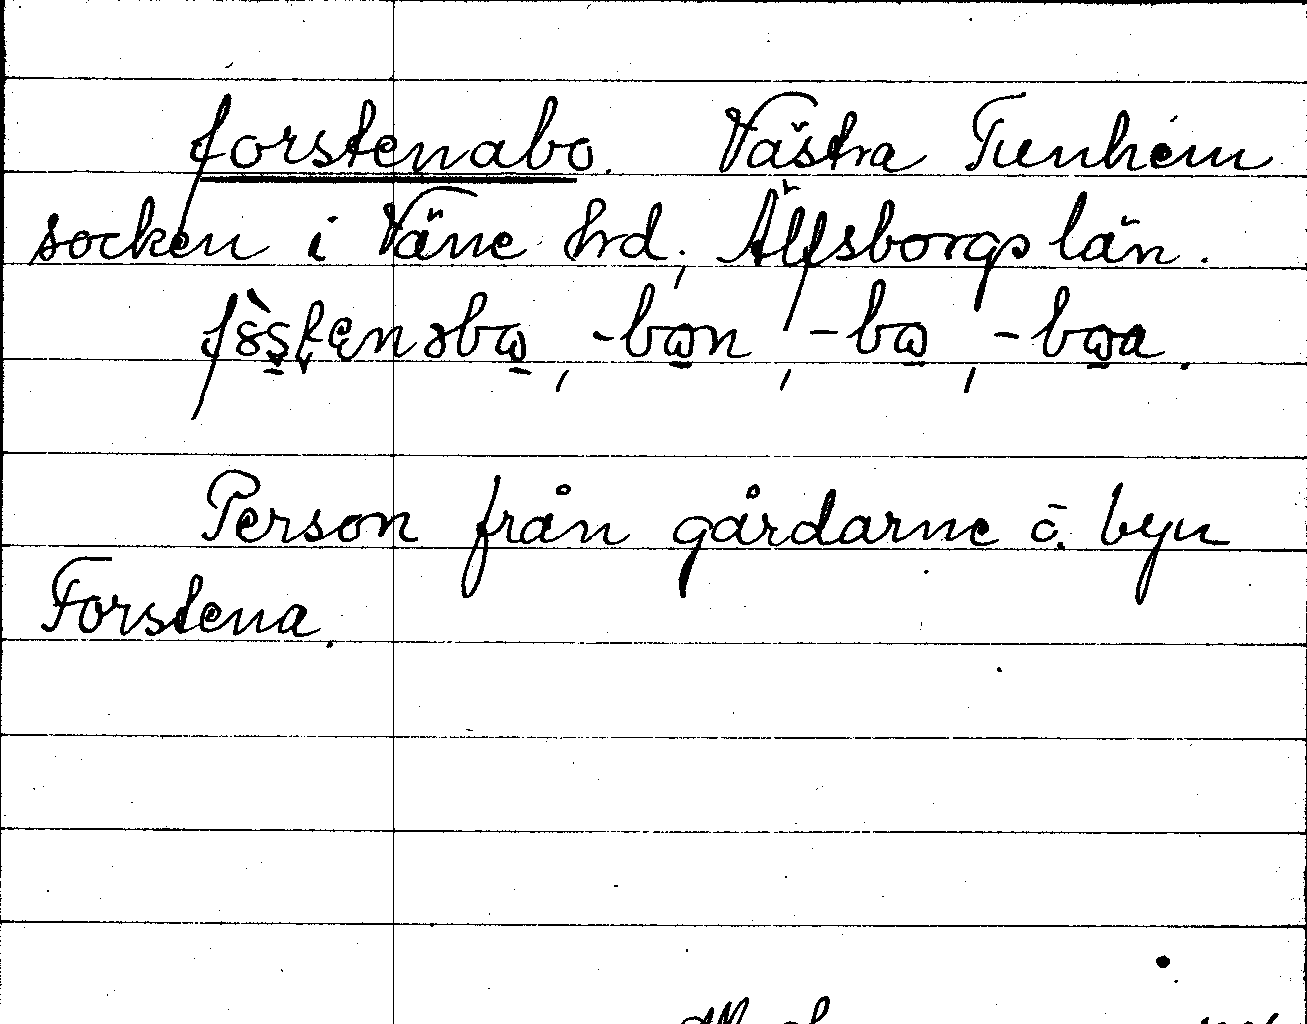 forstenabo. Västra Tunhem
socken i Väne hrd, Älfsborgs län.
fɔ̀ştenəbɷ, -bɷn, -bɷ, -bɷa.
Person från gårdarne o. byn
Forstena.